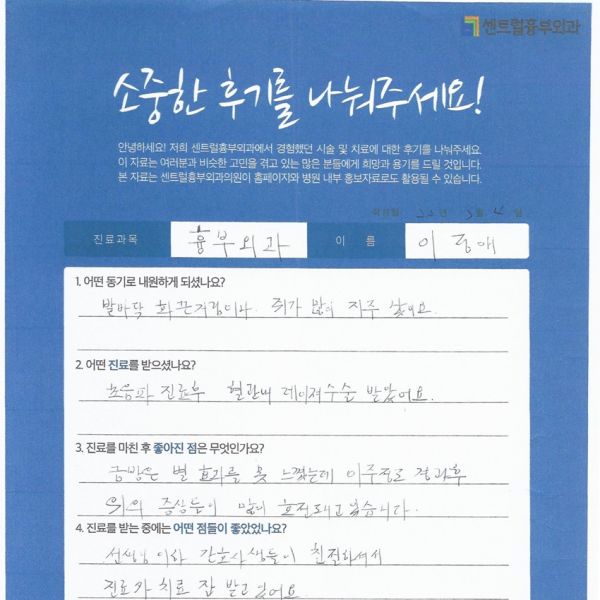 센트럴흉부외과
소중한 후기를 나눠주세요!
안녕하세요! 저희 센트럴흉부외과에서 경험했던 시술 및 치료에 대한 후기를 나눠주세요.
이 자료는 여러분과 비슷한 고민을 겪고 있는 많은 분들에게 희망과 용기를 드릴 것입니다.
본 자료는 센트럴흉부외과의원이 홈페이지와 병원 내부 홍보자료로도 활용될 수 있습니다.
22년 3월 4일
진료과목 흉부외과 이 름
1. 어떤 동기로 내원하게 되셨나요?
발바닥 화끈거림이나 쥐가 많이 자주 났어요.
2. 어떤 진료를 받으셨나요?
초음파 진료후 혈관내 레이져수술 받았어요.
3. 진료를 마친 후 좋아진 점은 무엇인가요?
금방은 별 효과를 못 느꼈는데 이주정도 경과후
위의 증상들이 많이 호전되고 있습니다.
4. 진료를 받는 중에는 어떤 점들이 좋았었나요?
선생님이하 간호사생들이 친절하셔서
진료가 치료 잘 받고 있어요